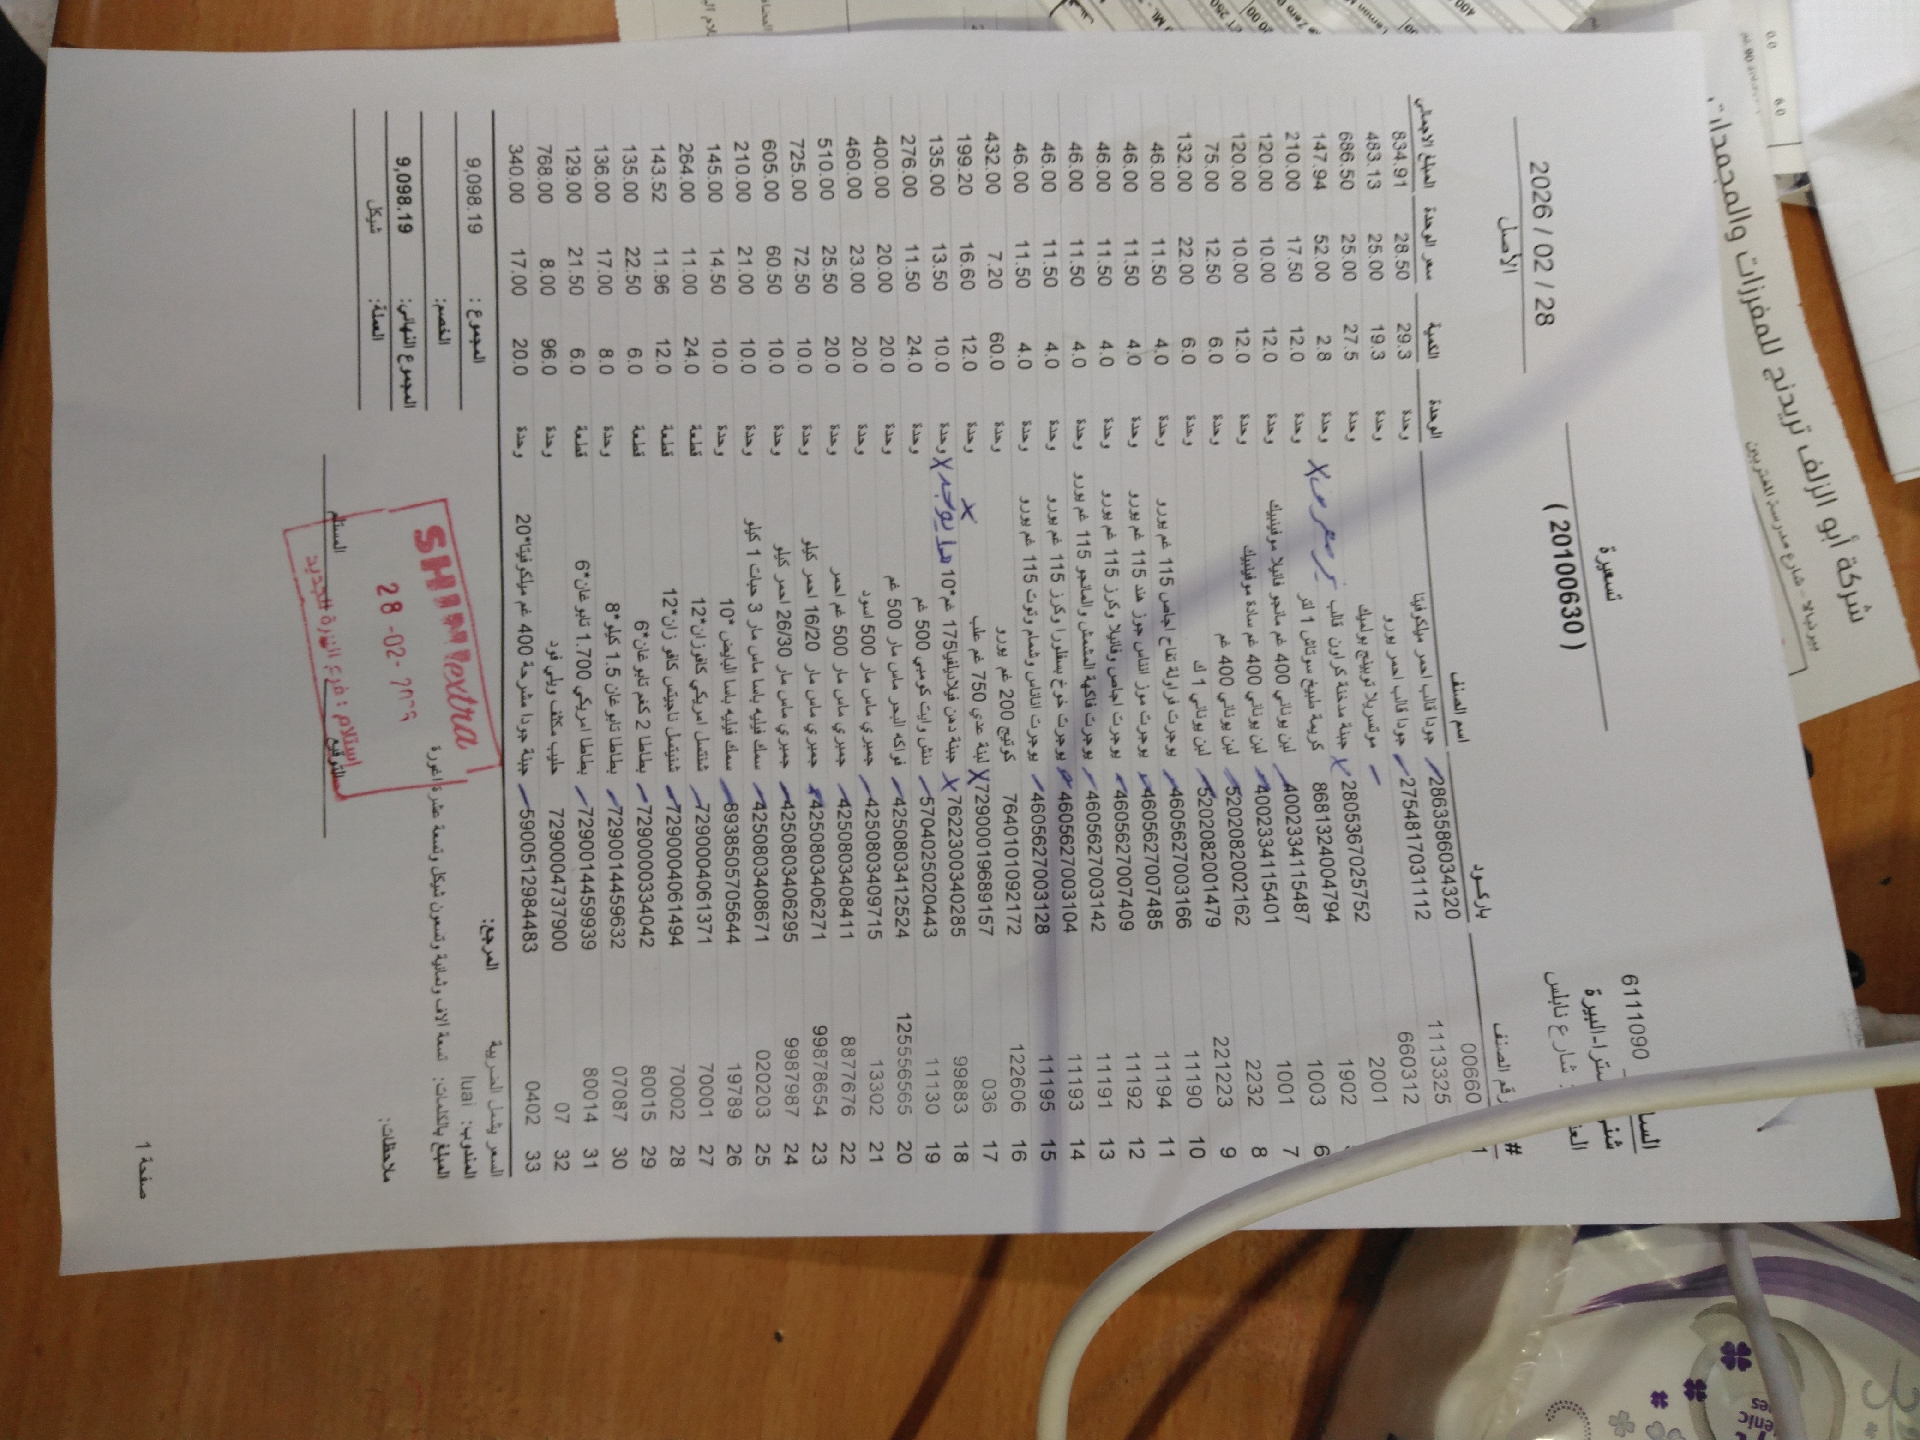 شركة أبو الزلف تريدنج للمفرزات والمجمدات
بيرنبالا - شارع مدرسة الفتريين
تسعيرة
( 20100630 )
2026 / 02 / 28
الأصل
6111090
شارع نابلس
# رقم الصنف باركود اسم الصنف الوحدة الكمية سعر الوحدة المبلغ الاجمالي
1 00660 2863586034320 جودا قالب احمر ميلكوفيتا وحدة 29.3 28.50 834.91
1113325 2754817031112 جودا قالب احمر يورو وحدة 19.3 25.00 483.13
660312 موتسريلا توبينج بولميك وحدة 27.5 25.00 686.50
2001 2805367025752 جبنة مدخنة كراون قالب وحدة 2.8 52.00 147.94
1902 8681324004794 كريمة طبيخ سوتاش 1 لتر وحدة 12.0 17.50 210.00
6 1003 4002334115487 لبن يوناني 400 غم مانجو فانيلا موفينبيك وحدة 12.0 10.00 120.00
7 1001 4002334115401 لبن يوناني 400 غم سادة موفينبيك وحدة 12.0 10.00 120.00
8 2232 5202082002162 لبن يوناني 400 غم وحدة 6.0 12.50 75.00
9 221223 5202082001479 لبن يوناني 1 ك وحدة 6.0 22.00 132.00
10 11190 4605627003166 يوجرت فراولة تفاح اجاص 115 غم يورو وحدة 4.0 11.50 46.00
11 11194 4605627007485 يوجرت موز اناناس جوز هند 115 غم يورو وحدة 4.0 11.50 46.00
12 11192 4605627007409 يوجرت اجاص وفانيلا وكرز 115 غم يورو وحدة 4.0 11.50 46.00
13 11191 4605627003142 يوجرت فاكهة المشمش والمانجو 115 غم يورو وحدة 4.0 11.50 46.00
14 11193 4605627003104 يوجرت خوخ بسفلورا وكرز 115 غم يورو وحدة 4.0 11.50 46.00
15 11195 4605627003128 يوجرت اناناس وشمام وتوت 115 غم يورو وحدة 4.0 11.50 46.00
16 122606 7640101092172 كوتيج 200 غم يورو وحدة 60.0 7.20 432.00
17 036 7290019689157 لبنة عدي 750 غم علب وحدة 12.0 16.60 199.20
18 99883 7622300340285 جبنة دهن فيلادلفيا175 غم*10 وحدة 10.0 13.50 135.00
19 11130 5704025020443 دنش وايت كومبي 500 غم وحدة 24.0 11.50 276.00
20 125556565 4250803412524 فواكه البحر ماس مار 500 غم وحدة 20.0 20.00 400.00
21 13302 4250803409715 جمبري ماس مار 500 اسود وحدة 20.0 23.00 460.00
22 8877676 4250803408411 جمبري ماس مار 500 غم احمر وحدة 20.0 25.50 510.00
23 99878654 4250803406271 جمبري ماس مار 16/20 احمر كيلو وحدة 10.0 72.50 725.00
24 99987987 4250803406295 جمبري ماس مار 26/30 احمر كيلو وحدة 10.0 60.50 605.00
25 020203 4250803408671 سمك فيليه باسا ماس مار 3 حبات 1 كيلو وحدة 10.0 21.00 210.00
26 19789 8938505705644 سمك فيليه باسا البايض *10 وحدة 10.0 14.50 145.00
27 70001 7290004061371 شنتسل امريكي كافوزان*12 قطعة 24.0 11.00 264.00
28 70002 7290004061494 شنيتسل ناجيتس كافو زان*12 قطعة 12.0 11.96 143.52
29 80015 7290000334042 بطاطا 2 كغم تابو غان*6 قطعة 6.0 22.50 135.00
30 07087 7290014459632 بطاطا تابو غان 1.5 كيلو*8 وحدة 8.0 17.00 136.00
31 80014 7290014459939 بطاطا امريكي 1.700 تابو غان*6 قطعة 6.0 21.50 129.00
32 07 7290004737900 حليب مكثف ويلي فود وحدة 96.0 8.00 768.00
33 0402 5900512984483 جبنة جودا مشرحة 400 غم ميلكوفيتا*20 وحدة 20.0 17.00 340.00
السعر يشمل الضريبة
المندوب: luai
المرجع:
المبلغ بالكلمات: تسعة الاف وثمانية وتسعون شيكل وتسعة عشرة اغورة
ملاحظات:
المجموع : 9,098.19
الخصم:
المجموع النهائي: 9,098.19
العملة: شيكل
المستلم
التوقيع
SHINI extra
28 -02- 2026
استلام : فرع البيرة الجديد
صفحة 1